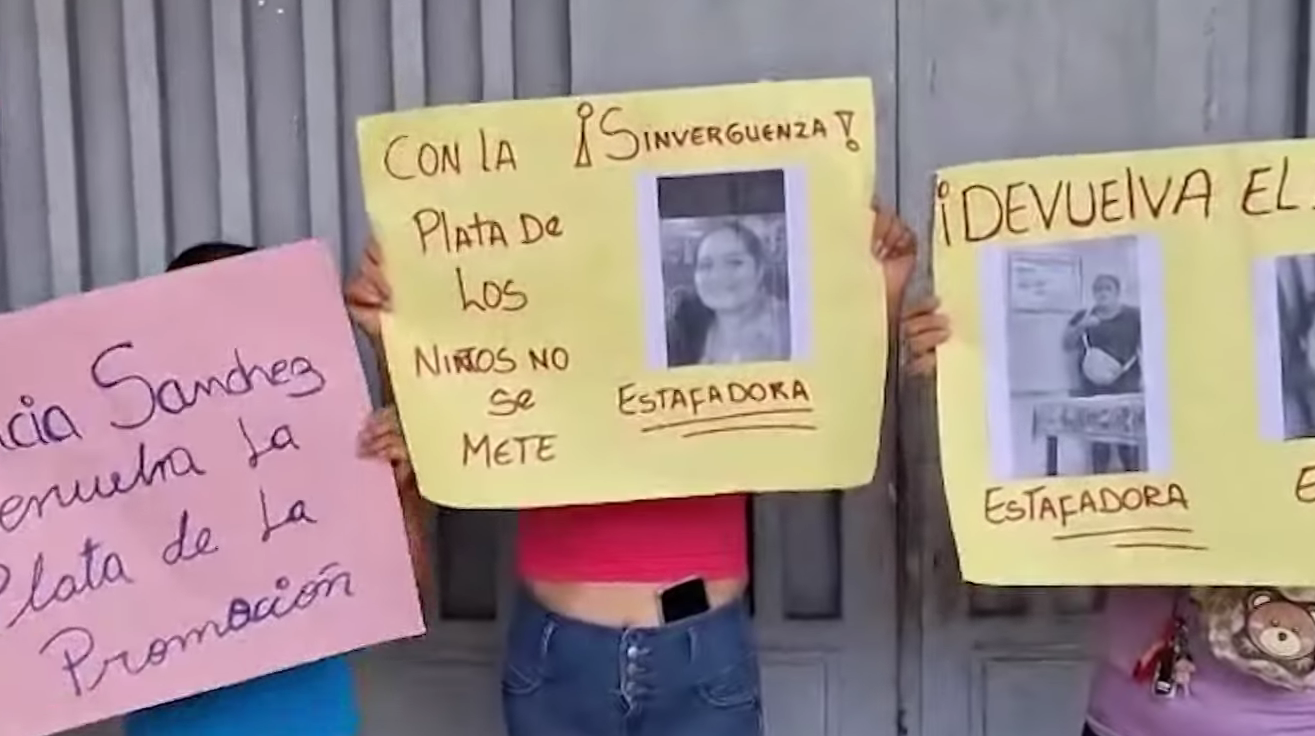 cia Sanchez
La
Plata de La
Promoción
CON LA
PLATA De
LOS
NIÑOS NO
Se
METE
¡SINVERGUENZA!
ESTAFADORA
¡DEVUELVA EL
ESTAFADORA
E